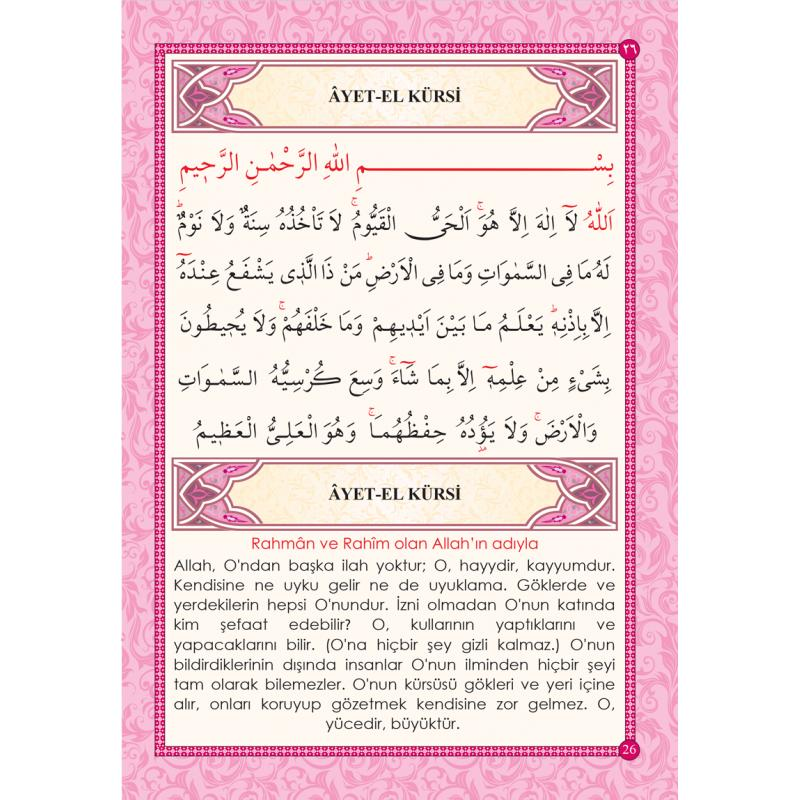 ٢٦
ÂYET-EL KÜRSİ
بِسْمِ اللّٰهِ الرَّحْمٰنِ الرَّح۪يمِ
اَللّٰهُ لَٓا اِلٰهَ اِلَّا هُوَۚ اَلْحَيُّ الْقَيُّومُۚ لَا تَأْخُذُهُ سِنَةٌ وَلَا نَوْمٌۜ
لَهُ مَا فِي السَّمٰوَاتِ وَمَا فِي الْاَرْضِۜ مَنْ ذَا الَّذ۪ي يَشْفَعُ عِنْدَهُٓ
اِلَّا بِاِذْنِه۪ۜ يَعْلَمُ مَا بَيْنَ اَيْد۪يهِمْ وَمَا خَلْفَهُمْۚ وَلَا يُح۪يطُونَ
بِشَيْءٍ مِنْ عِلْمِه۪ٓ اِلَّا بِمَا شَٓاءَۚ وَسِعَ كُرْسِيُّهُ السَّمٰوَاتِ
وَالْاَرْضَۚ وَلَا يَؤُ۫دُهُ حِفْظُهُمَاۚ وَهُوَ الْعَلِيُّ الْعَظ۪يمُ
ÂYET-EL KÜRSİ
Rahmân ve Rahîm olan Allah'ın adıyla
Allah, O'ndan başka ilah yoktur; O, hayydir, kayyumdur.
Kendisine ne uyku gelir ne de uyuklama. Göklerde ve
yerdekilerin hepsi O'nundur. İzni olmadan O'nun katında
kim şefaat edebilir? O, kullarının yaptıklarını ve
yapacaklarını bilir. (O'na hiçbir şey gizli kalmaz.) O'nun
bildirdiklerinin dışında insanlar O'nun ilminden hiçbir şeyi
tam olarak bilemezler. O'nun kürsüsü gökleri ve yeri içine
alır, onları koruyup gözetmek kendisine zor gelmez. O,
yücedir, büyüktür.
26